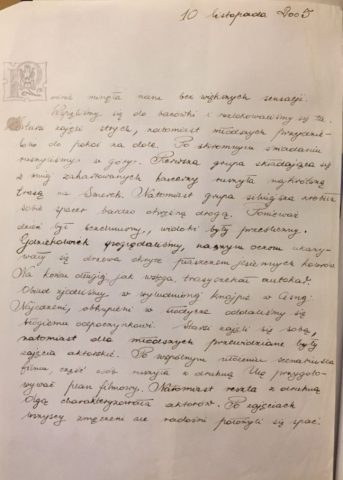 10 listopada 2005
Podróż minęła nam bez większych sensacji.
Przybyliśmy się do bacówki i rozlokowaliśmy się tu.
Starsi zajęli strych, natomiast młodszych przydzielono
do pokoi na dole. Po skromnym śniadaniu
ruszyliśmy w góry. Pierwsza grupa składająca się
z mniej zahartowanych harcerzy ruszyła najkrótszą
trasą na Smerek. Natomiast grupa zrobiła
sobie spacer bardzo okrężną drogą. Ponieważ
dzień był bezchmurny, widoki były przecudowne.
Gdziekolwiek spoglądaliśmy, naszym oczom ukazywały
się drzewa okryte płaszczem jesiennych kolorów.
Na końcu długiej jak wstęga trasy czekał autokar.
Obiad zjedliśmy w wymienionej knajpie w Cisnej.
Najedzeni, obkupieni w słodycze oddaliśmy się
błogiemu odpoczynkowi. Starsi zajęli się sobą,
natomiast dla młodszych przewidziane były
zajęcia aktorskie. Po wspólnym ułożeniu scenariusza
filmu część osób ruszyła z druhną Ulą przygotowywać
plan filmowy. Natomiast reszta z druhną
Olgą charakteryzowała aktorów. Po zajęciach
wszyscy zmęczeni ale radośni położyli się spać.